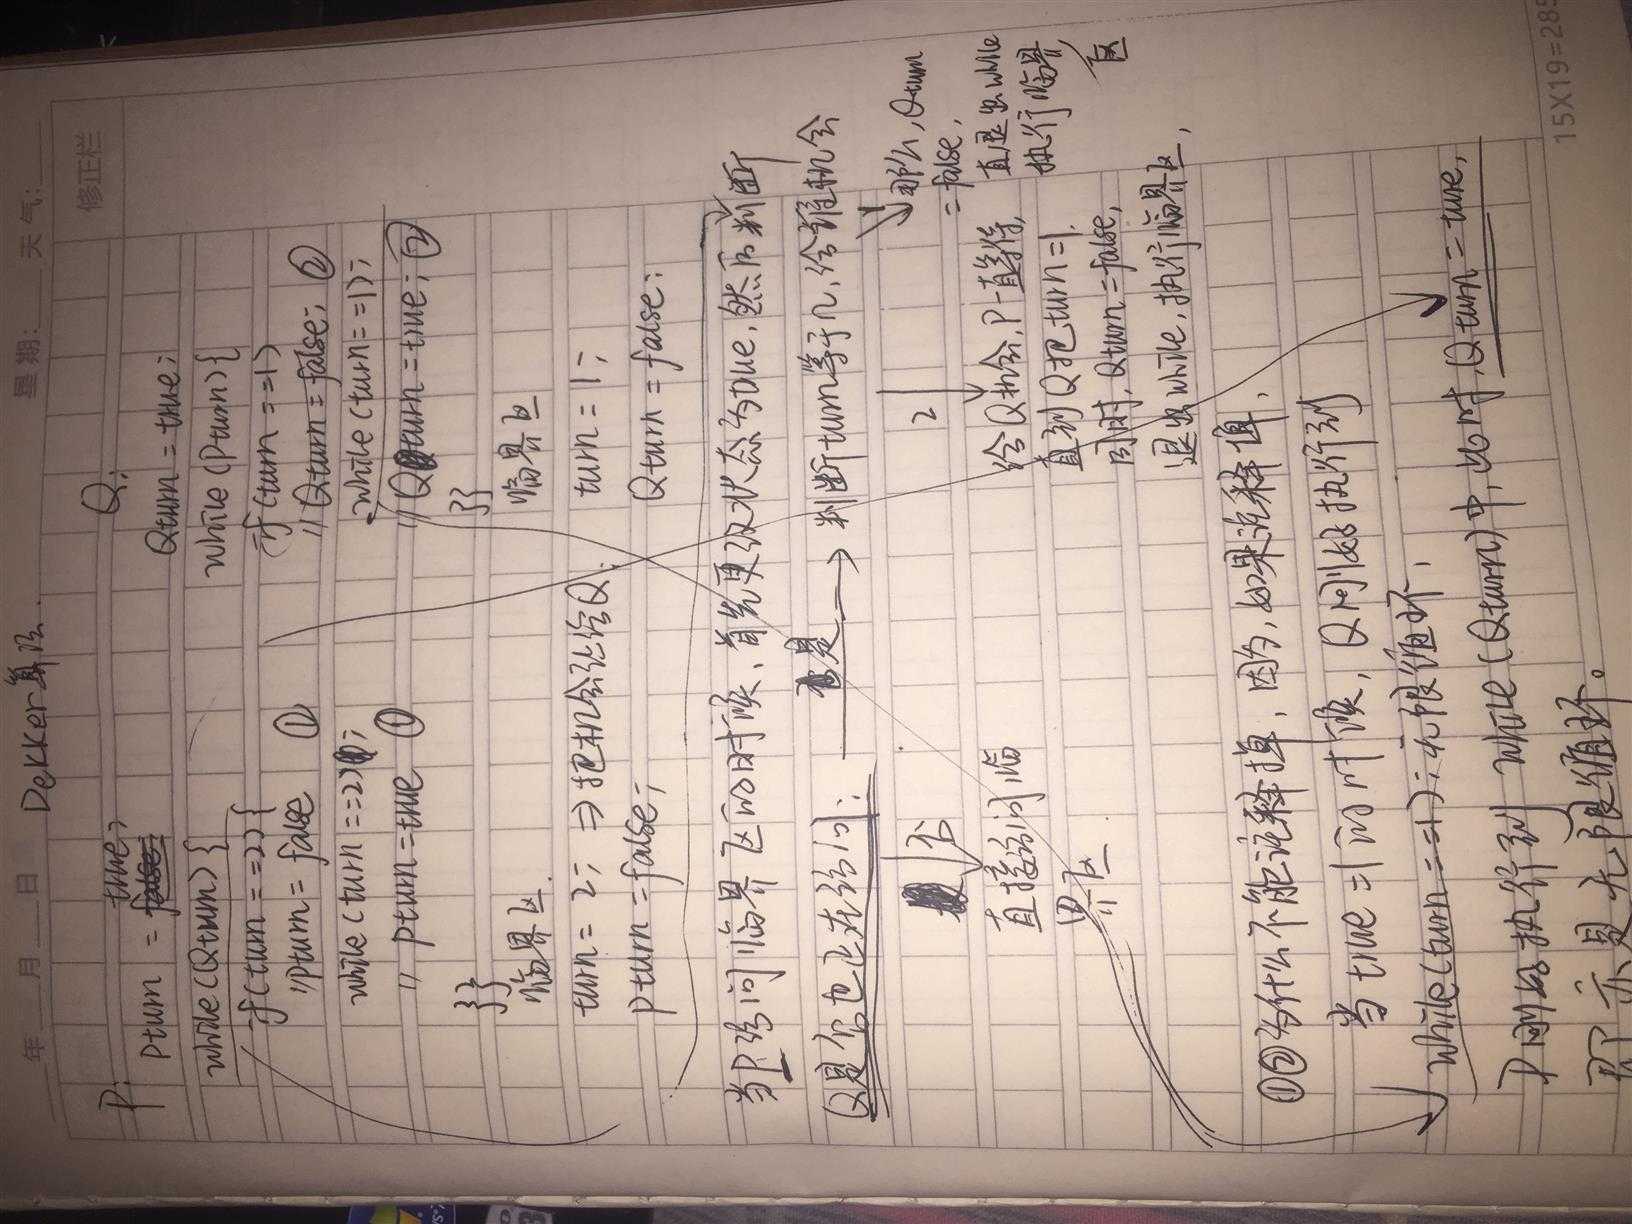 年 月 日 星期: 天气:
修正栏
Dekker算法.
P:
Pturn = false true;
while(Qturn){
if(turn==2){
"Pturn = false ①
while(turn==2);
" Pturn=true ①
}}
临界区.
turn = 2; ⇒把机会让给Q.
Pturn = false;
Q:
Qturn = true;
while(Pturn){
if(turn==1)
"Qturn=false; ②
while(turn==1);
"Qturn=true; ②
}}
临界区
turn = 1;
Qturn = false;
当P访问临界区的时候、首先更改状态为true,然后判断
Q是否也正在访问: 是→判断turn等于几,给谁机会
否
直接访问临
界区.
2
给Q机会,P一直等待,
直到Q把turn=1.
同时,Qturn=false,
退出while,执行临界区,
那么,Qturn
=false,
直退出while
执行临界
区
①②为什么不能注释掉,因为,如果注释掉,
当true=1的时候,Q刚好执行到
while(turn==1);无限循环,
P刚好执行到 while(Qturn)中,此时,Qturn=true,
即亦是无限循环。
15X19=285